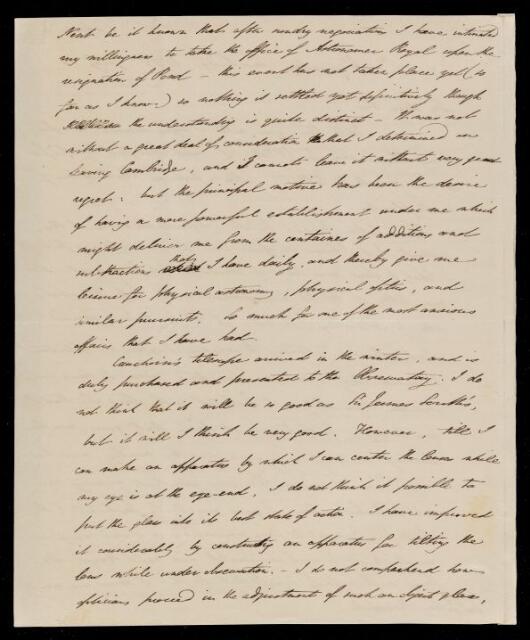 Next be it known that after sundry negociations I have intimated
my willingness to take the office of Astronomer Royal upon the
resignation of Pond – this event has not taken place yet (so
far as I know) so nothing is settled yet definitively though
the understanding is quite distinct – It was not
without a great deal of consideration that I determined on
leaving Cambridge, and I cannot leave it without very great
regret: but the principal motive has been the desire
of having a more powerful establishment under me which
might deliver me from the centaines of additions and
subtractions that I have daily, and thereby give me
leisure for physical astronomy, physical optics, and
similar pursuits. So much for one of the most anxious
affairs that I have had.
Cauchoix's telescope arrived in the winter, and is
duly purchased and presented to the Observatory. I do
not think that it will be so good as Sir James South's,
but it will I think be very good. However, till I
can make an apparatus by which I can center the lenses while
my eye is at the eye-end, I do not think it possible to
put the glass into its best state of action. I have improved
it considerably by constructing an apparatus for tilting the
lens while under observation. – I do not comprehend how
opticians proceed in the adjustment of such an object glass,